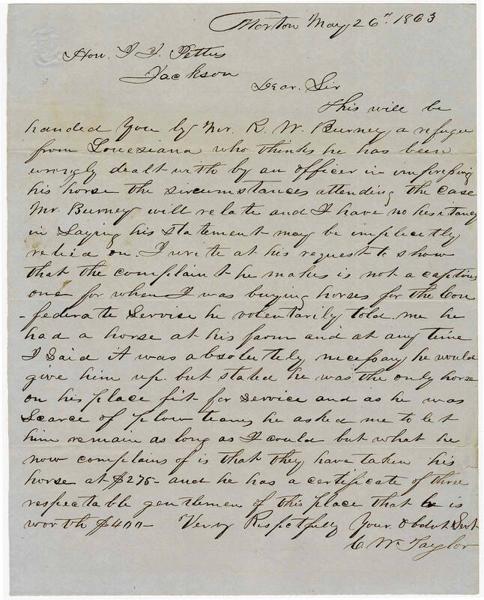 Morton May 26" 1863
Hon. J. J. Pettus
Jackson
Dear. Sir
This will be
handed you by Mr. R. W. Burney a refugee
from Louesiana who thinks he has been
wrongly dealt with by an officer in impressing
his horse the sircumstances attending the case
Mr Burney will relate and I have no hesitancy
in saying his statement may be implicitly
relied on. I write at his request to show
that the complaint he makes is not a captious
one for when I was buying horses for the Con
-federate Servise he voluntarily told me he
had a horse at his farm and at any time
I said it was absolutely necessary he would
give him up but stated he was the only horse
on his place fit for service and as he was
scarce of plow teams he asked me to let
him remain as long as I could but what he
now complains of is that they have taken his
horse at $275- and he has a certificate of three
respectable gentlemen of this place that he is
worth $400- Verry Respctfully Your Obdnt Svt
C W Taylor